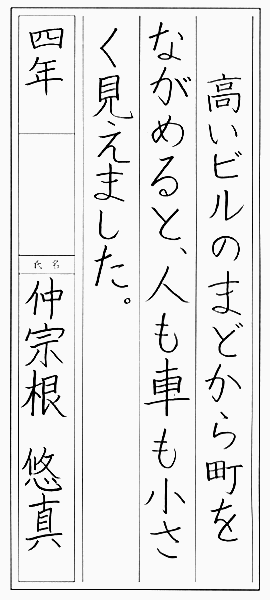 高いビルのまどから町を
ながめると、人も車も小さ
く見えました。
四年
氏名
仲宗根 悠真